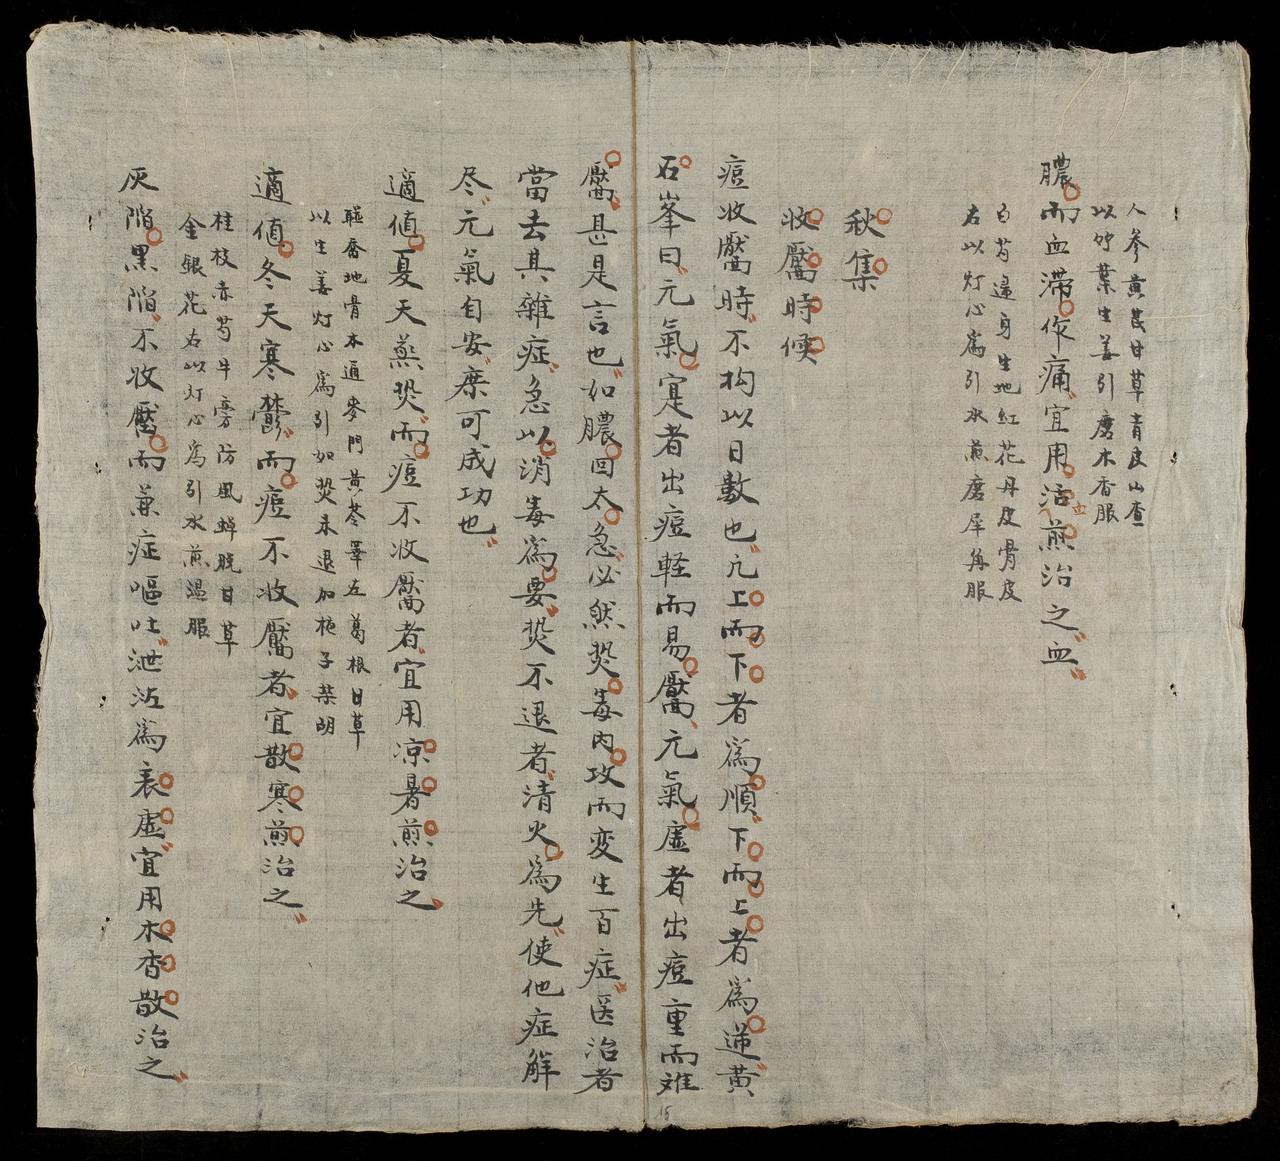 人參黃芪甘草青皮山查
以竹葉生姜引磨木香服
膿而血滞作痛宜用活血煎治之
白芍連身生地紅花丹皮骨皮
右以灯心為引水煎磨犀角服
秋集
收靨時候
痘收靨時不拘以日數也凢上而下者為順下而上者為逆黃
石峯曰元氣寔者出痘軽而易靨元氣虛者出痘重而难
靨甚是言也如膿回太急必然𤍠毒内攻而变生百症医治者
當去其雜症急以消毒為要𤍠不退者清火為先使他症解
尽元氣自安庶可成功也
適值夏天𤍠而痘不收靨者宜用凉暑煎治之
骨本通麥門黃芩澤左葛根甘草
以生姜灯心為引如𤍠未退加梔子柴胡
適值冬天寒鬱而痘不收靨者宜散寒煎治之
桂枝赤芍牛旁防風蟬脱甘草
金銀花右以灯心為引水煎温服
灰陷黑陷不收靨而兼症嘔吐泄泻為裏虛宜用木香散治之